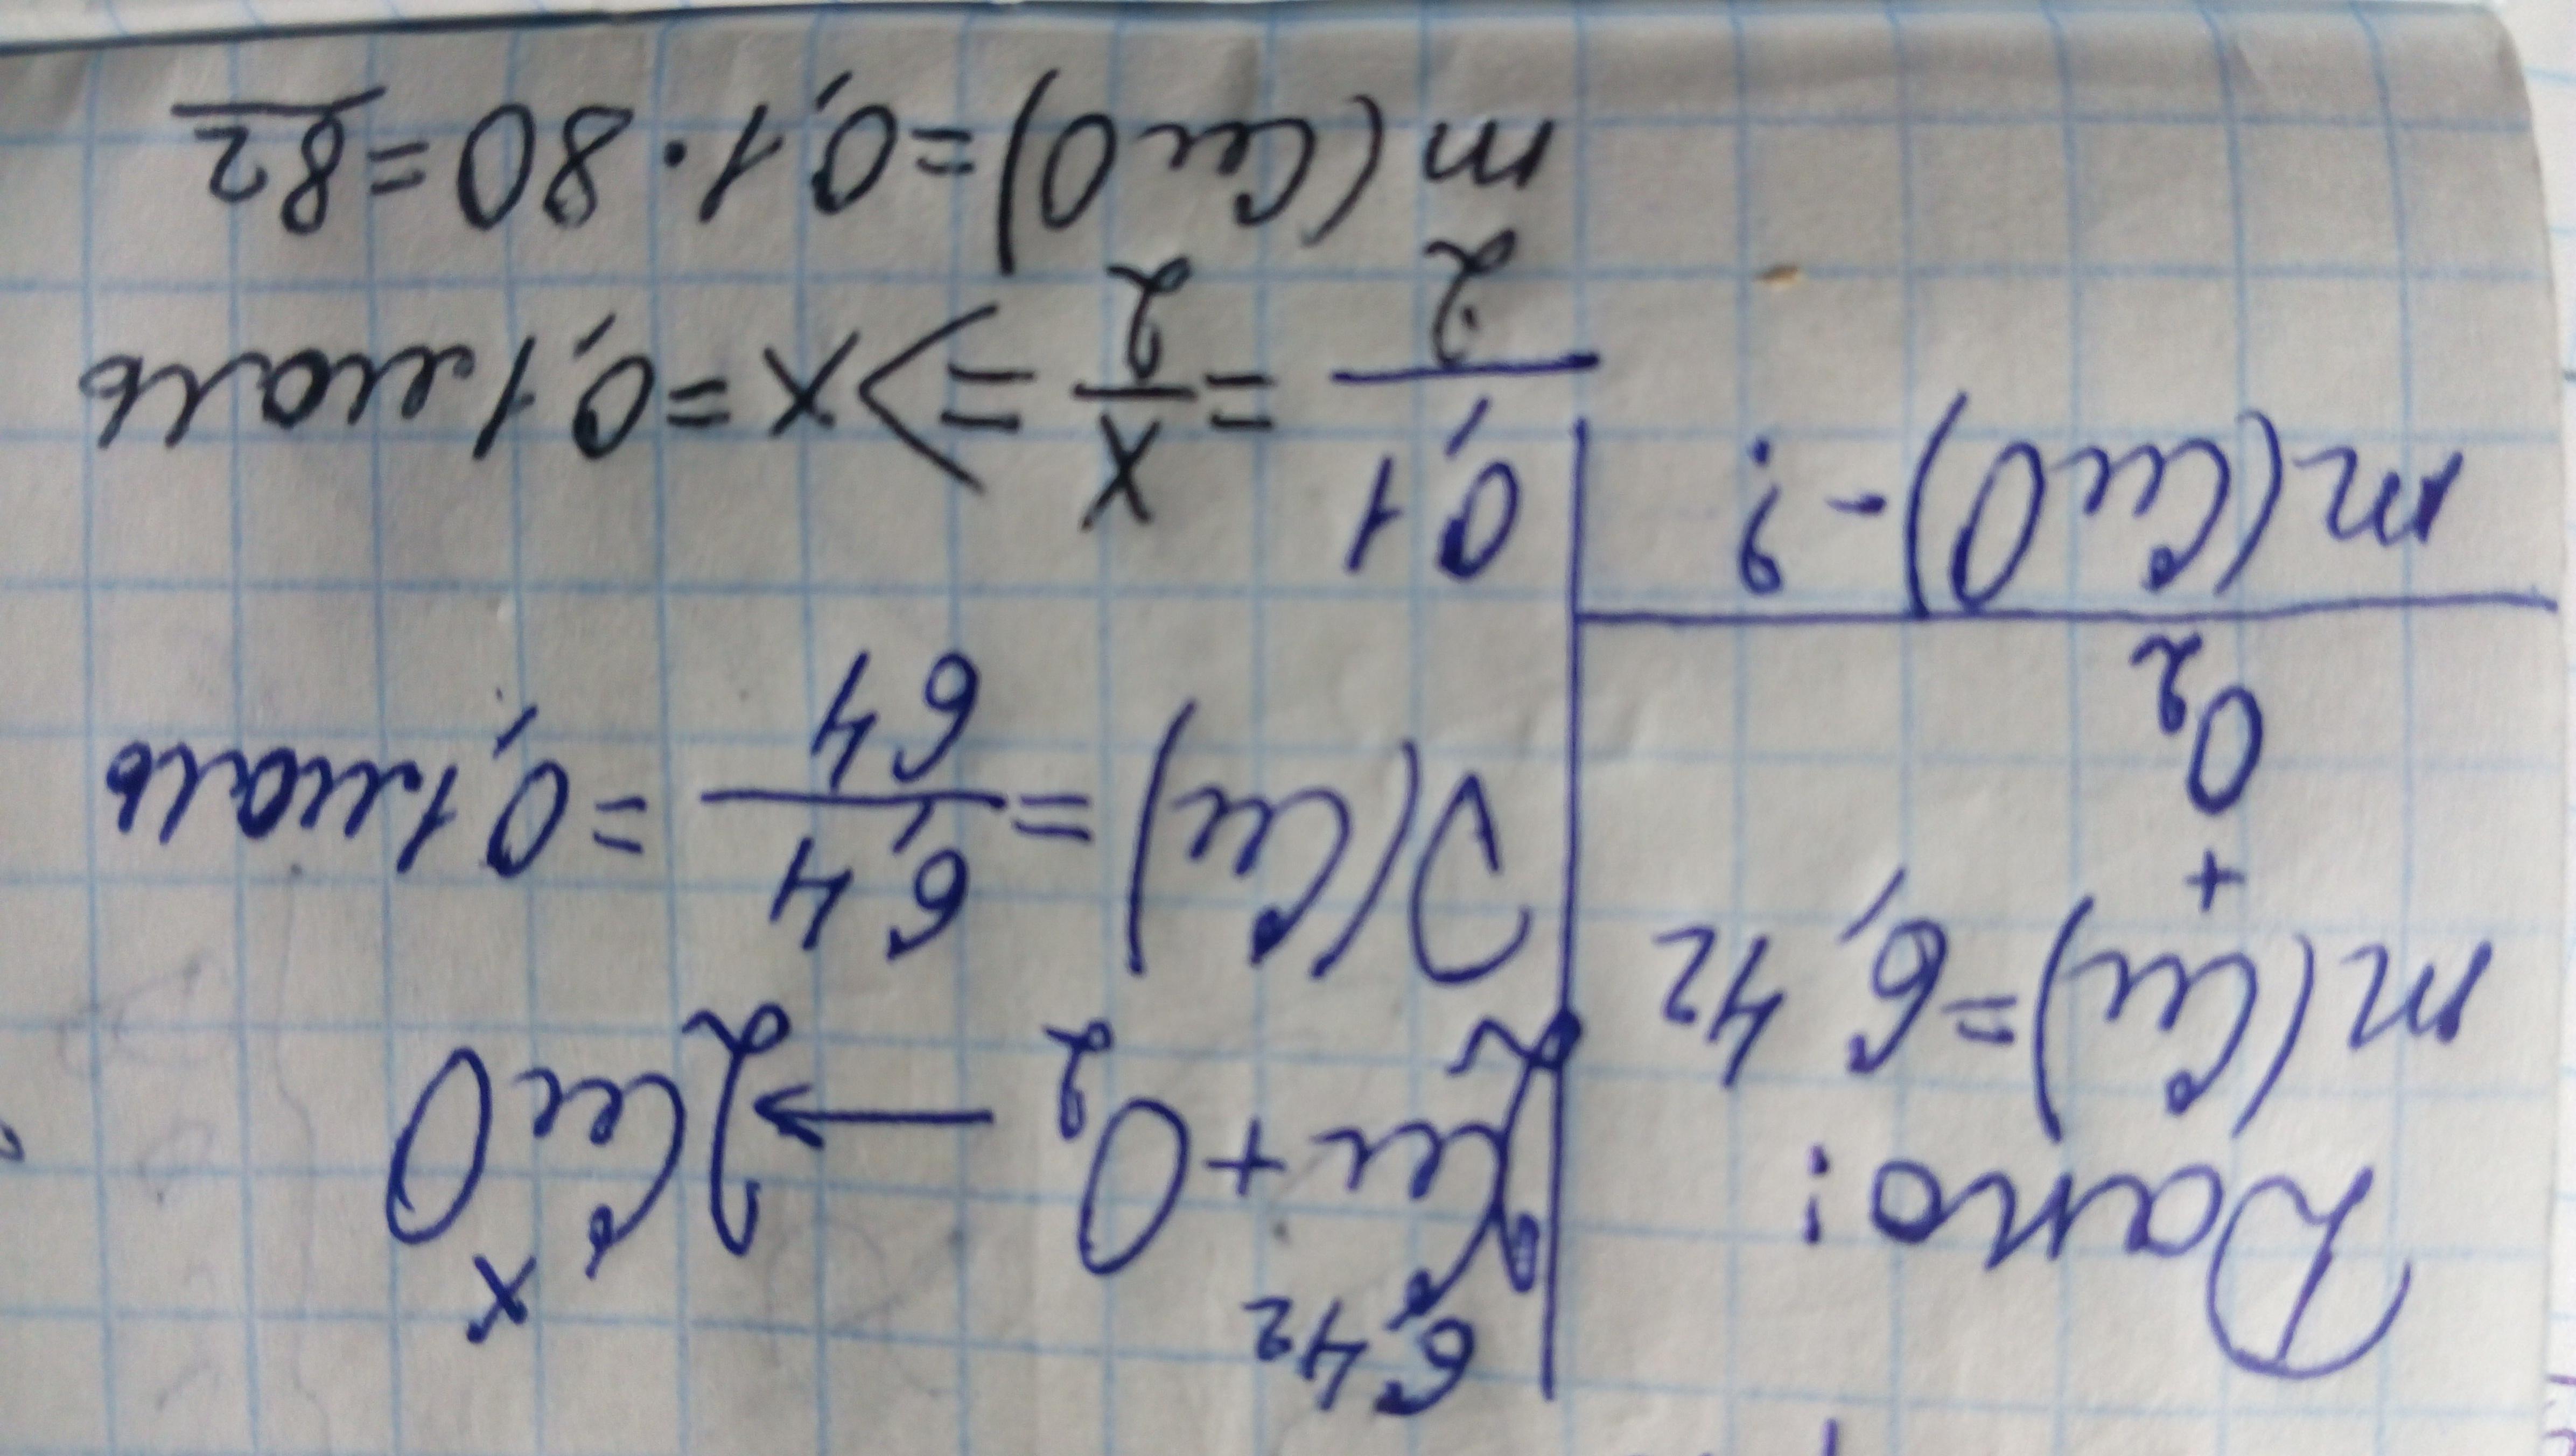 Дано:
m(Cu)=6,4г
+
O2
m(CuO)-?
6,4г x
2Cu+O2→2CuO
2 2
ν(Cu)=6,4/64=0,1моль
0,1/2=x/2=>x=0,1моль
m(CuO)=0,1·80=8г